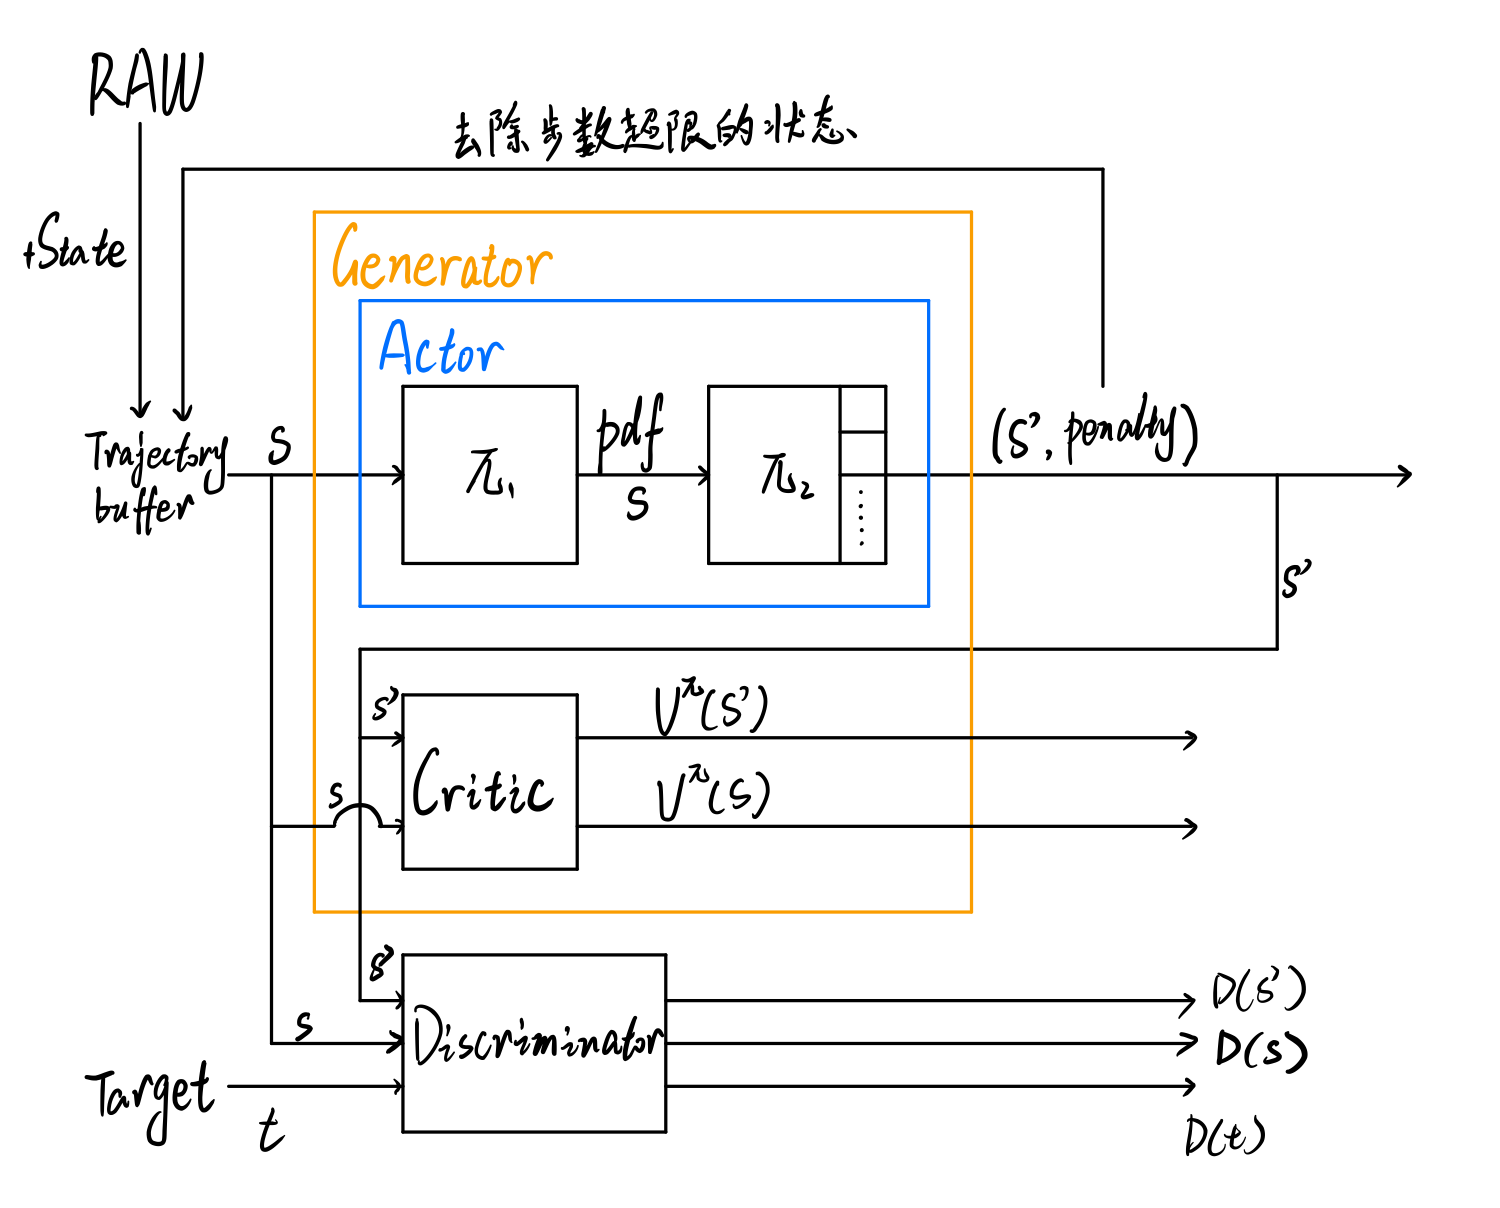 RAW
去除步数超限的状态
+State
Generator
Actor
Trajectory
buffer
S
π₁
pdf
S
π₂
(S', penalty)
S'
S'
Critic
V^π(S')
S
V^π(S)
S'
Discriminator
D(S')
S
D(S)
Target
t
D(t)